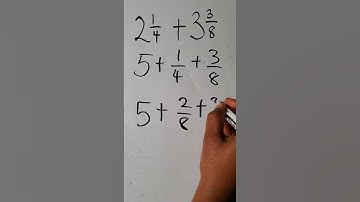 2 1/4 + 3 3/8
5 + 1/4 + 3/8
5 + 2/8 +